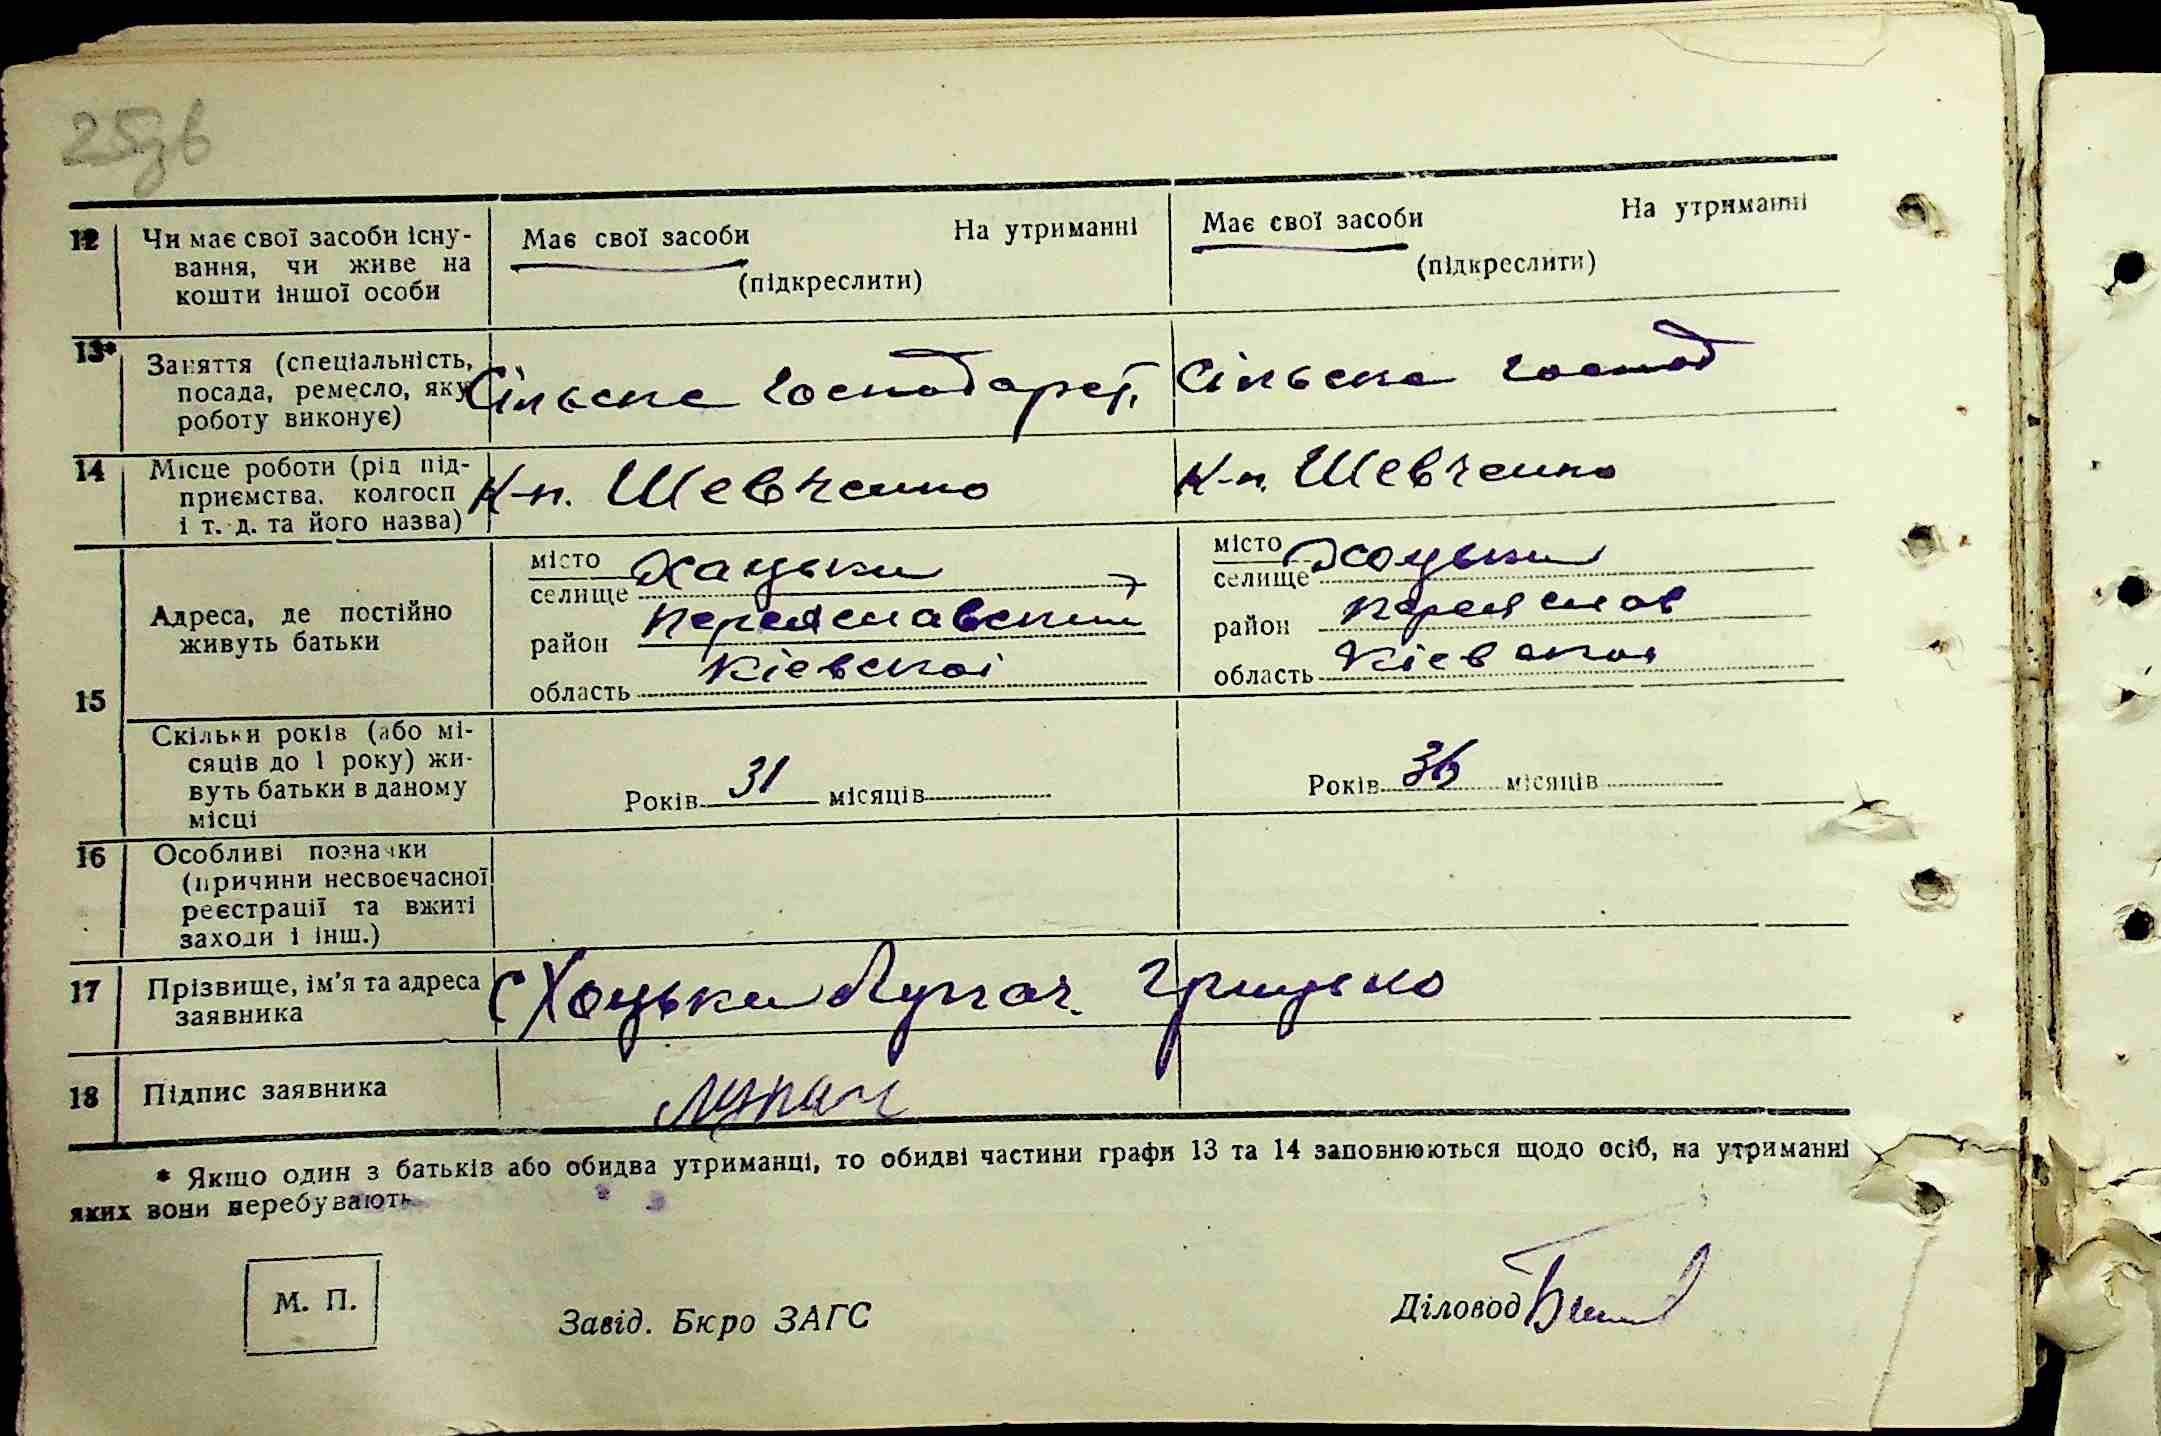 25зв
12 Чи має свої засоби існу-
вання, чи живе на
кошти іншої особи
Має свої засоби На утриманні
(підкреслити)
Має свої засоби На утриманні
(підкреслити)
13* Заняття (спеціальність,
посада, ремесло, яку
роботу виконує)
Сільське господарст.
Сільське господ
14 Місце роботи (рід під-
приємства, колгосп
і т. д. та його назва)
К-п. Шевченко
К-п. Шевченко
15
Адреса, де постійно
живуть батьки
місто
селище Хацьки
район Переяславський
область Кіевскої
місто
селище Хоцьки
район Переяслав
область Кіевской
Скільки років (або мі-
сяців до 1 року) жи-
вуть батьки в даному
місці
Років 31 місяців
Років 36 місяців
16 Особливі позначки
(причини несвоєчасної
реєстрації та вжиті
заходи і інш.)
17 Прізвище, ім'я та адреса
заявника
С Хоцьки Лупач. Грицько
18 Підпис заявника
Лупач
* Якщо один з батьків або обидва утриманці, то обидві частини графи 13 та 14 заповнюються щодо осіб, на утриманні
яких вони перебувають
М. П.
Завід. Бюро ЗАГС
Діловод